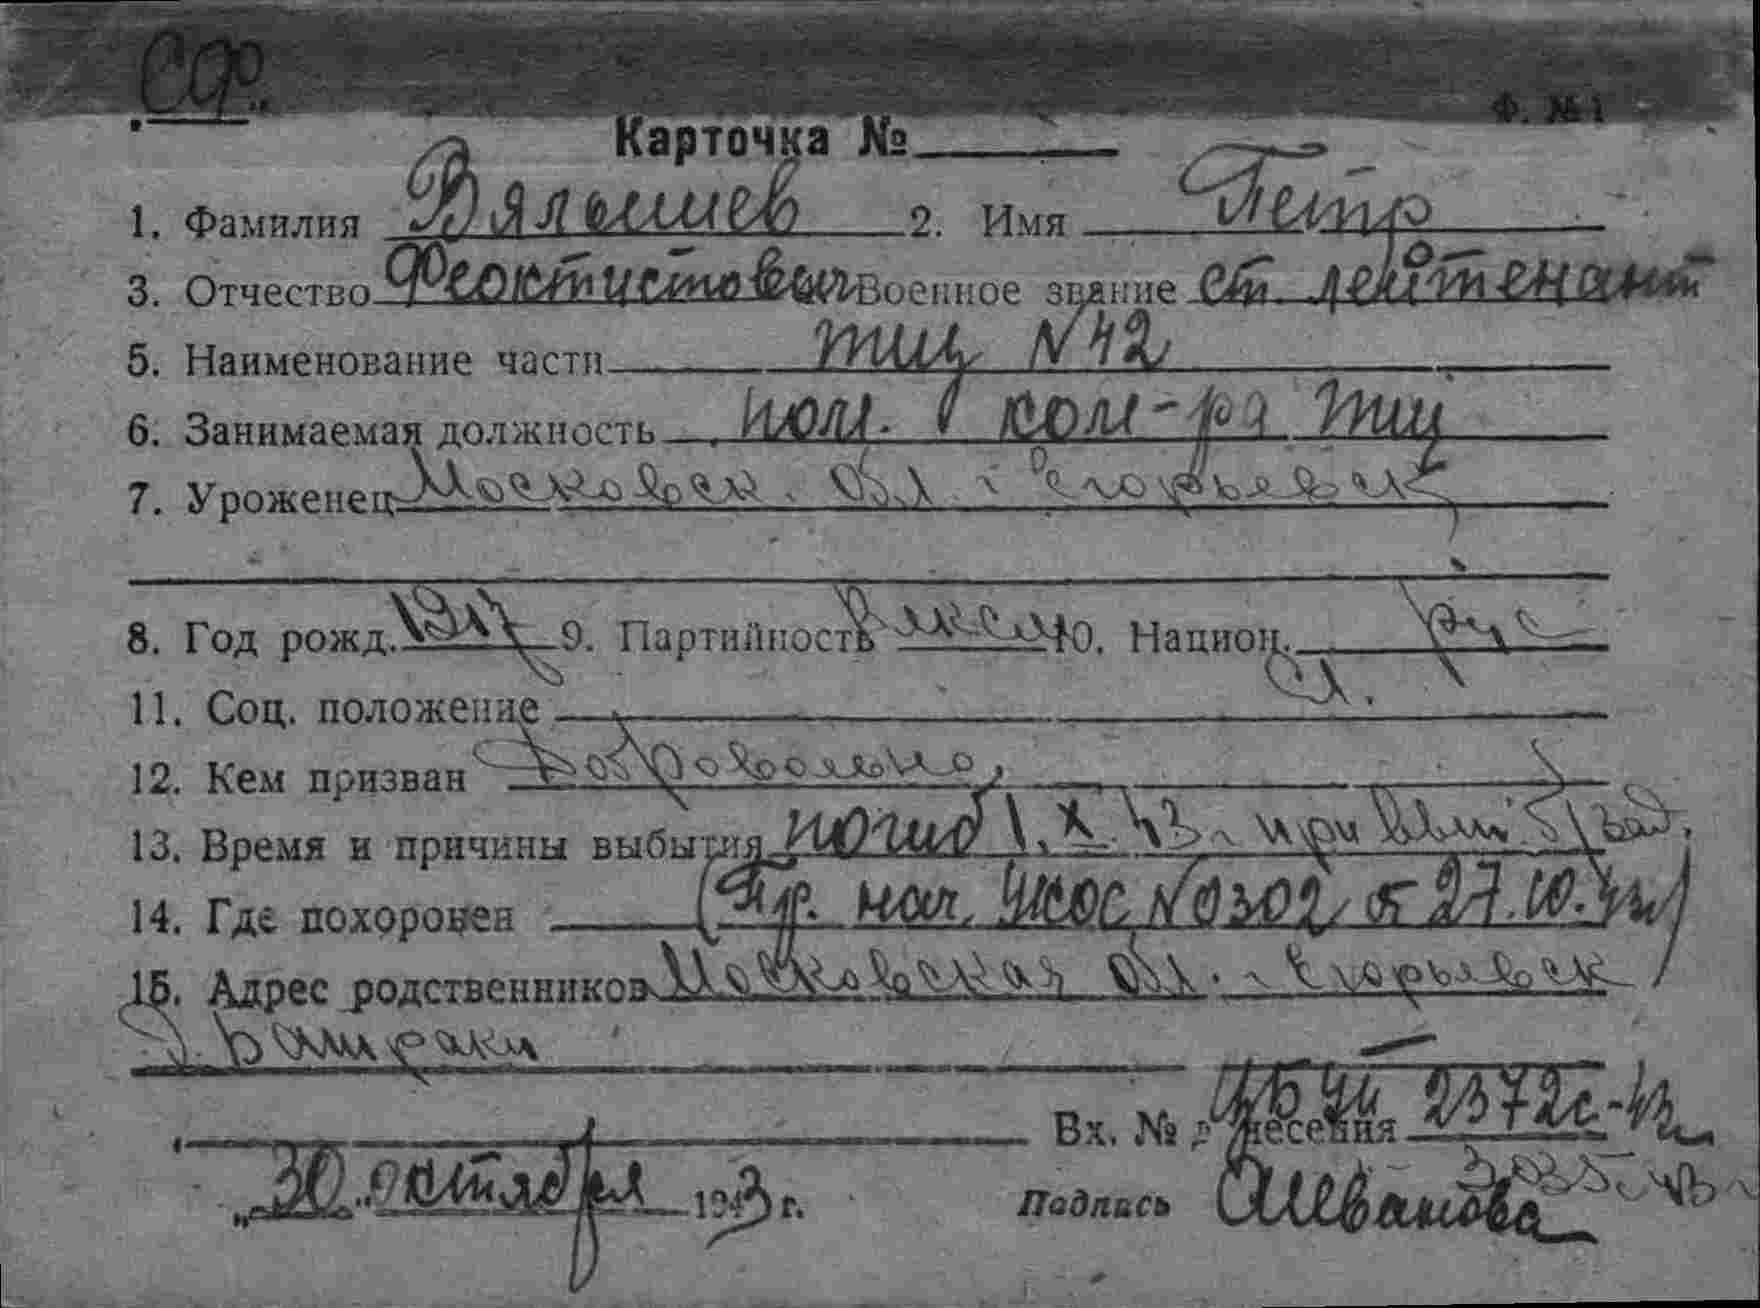 СФ.
Ф. № 1
Карточка №
1. Фамилия Вялышев 2. Имя Петр
3. Отчество Феоктистович Военное звание ст. лейтенант
5. Наименование части тщ N 42
6. Занимаемая должность пом. ком-ра тщ
7. Уроженец Московск. обл. г Егорьевск
8. Год рожд. 1917 9. Партийность влксм 10. Национ. рус
11. Соц. положение сл.
12. Кем призван Добровольно,
13. Время и причины выбытия погиб 1. X. 43 г при вып. б/зад.
14. Где похоронен (Пр. нач. УКОС N 0302 от 27.10.43 г)
15. Адрес родственников Московская обл. г Егорьевск
д. Батраки
Вх. № донесения ЦБ УК 2372с-43 г
3035с 43 г
„30" октября 1943 г. Подпись Иванова